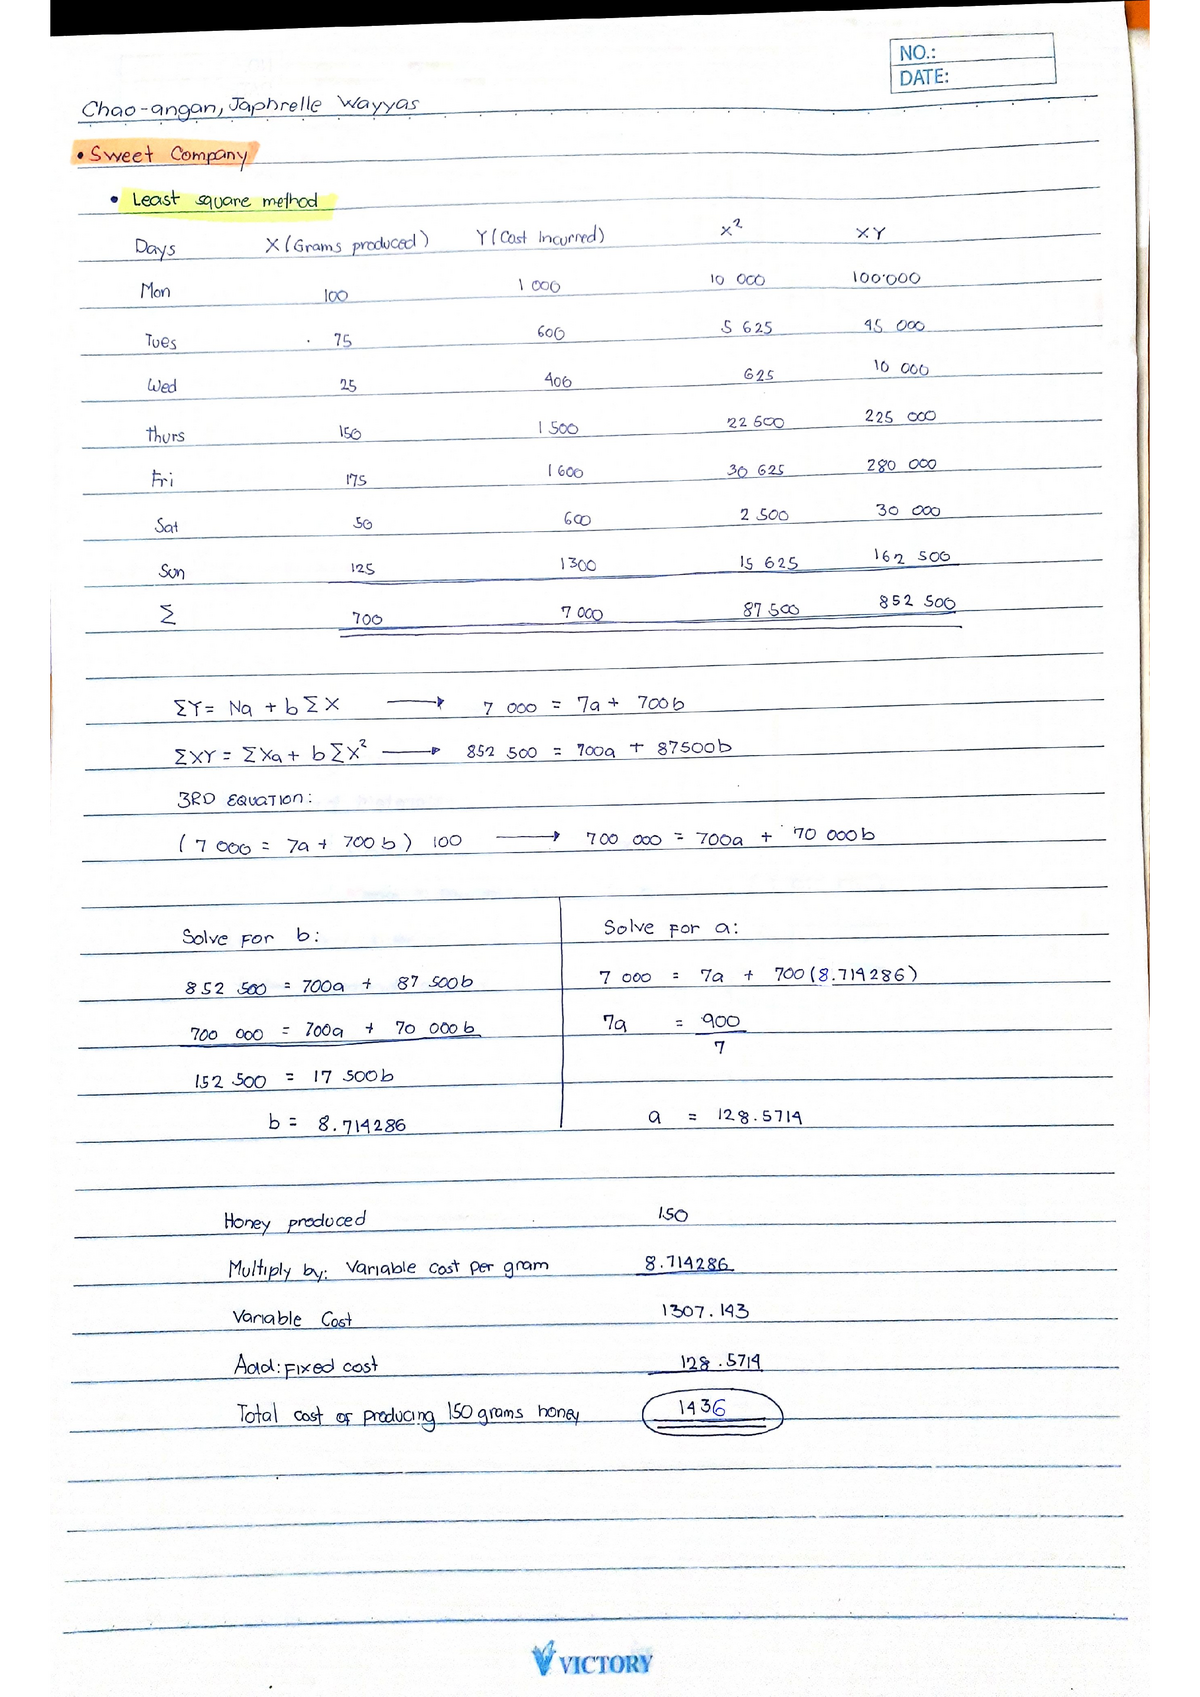 NO.:
DATE:
Chao-angan, Japhrelle Wayyas
• Sweet Company
• Least square method
Days X (Grams produced) Y (Cost Incurred) X² XY
Mon 100 1 000 10 000 100'000
Tues 75 600 5 625 45 000
Wed 25 400 625 10 000
Thurs 150 1 500 22 500 225 000
Fri 175 1 600 30 625 280 000
Sat 50 600 2 500 30 000
Sun 125 1300 15 625 162 500
Σ 700 7 000 87 500 852 500
ΣY = Na + bΣX → 7 000 = 7a + 700b
ΣXY = ΣXa + bΣX² → 852 500 = 700a + 87500b
3RD EQUATION:
(7 000 = 7a + 700 b) 100 → 700 000 = 700a + 70 000b
Solve For b:
852 500 = 700a + 87 500b
700 000 = 700a + 70 000 b
152 500 = 17 500b
b = 8.714286
Solve For a:
7 000 = 7a + 700 (8.714286)
7a = 900
7
a = 128.5714
Honey produced 150
Multiply by: Variable cost per gram 8.714286
Variable Cost 1307.143
Add: Fixed cost 128.5714
Total cost of producing 150 grams honey 1436
VICTORY